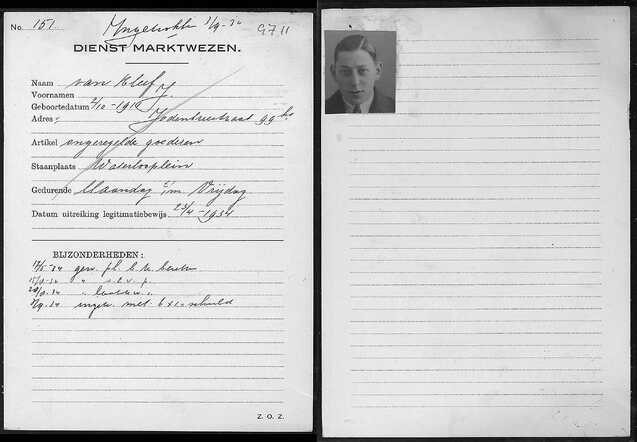 No. 151. Ingetrokken 3/9-34 G711
DIENST MARKTWEZEN.
Naam van Kleef
Voornamen J.
Geboortedatum 2/10-1916
Adres: Jodenbreestraat 99 hs
Artikel ongeregelde goederen
Staanplaats Waterlooplein
Gedurende Maandag t/m Vrijdag
Datum uitreiking legitimatiebewijs. 23/4-1934
BIJZONDERHEDEN:
-34 gew. pl. b.
-34 "
-34 "
3/9-34 ingetr. met schuld
Z. O. Z.